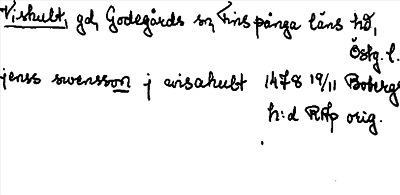 Viskult, gd, Godegårds sn, Finspånga läns hd,
Östg. l.
jenss swensson j visahult 1478 19/11 Bobergs
h:d RAp orig.